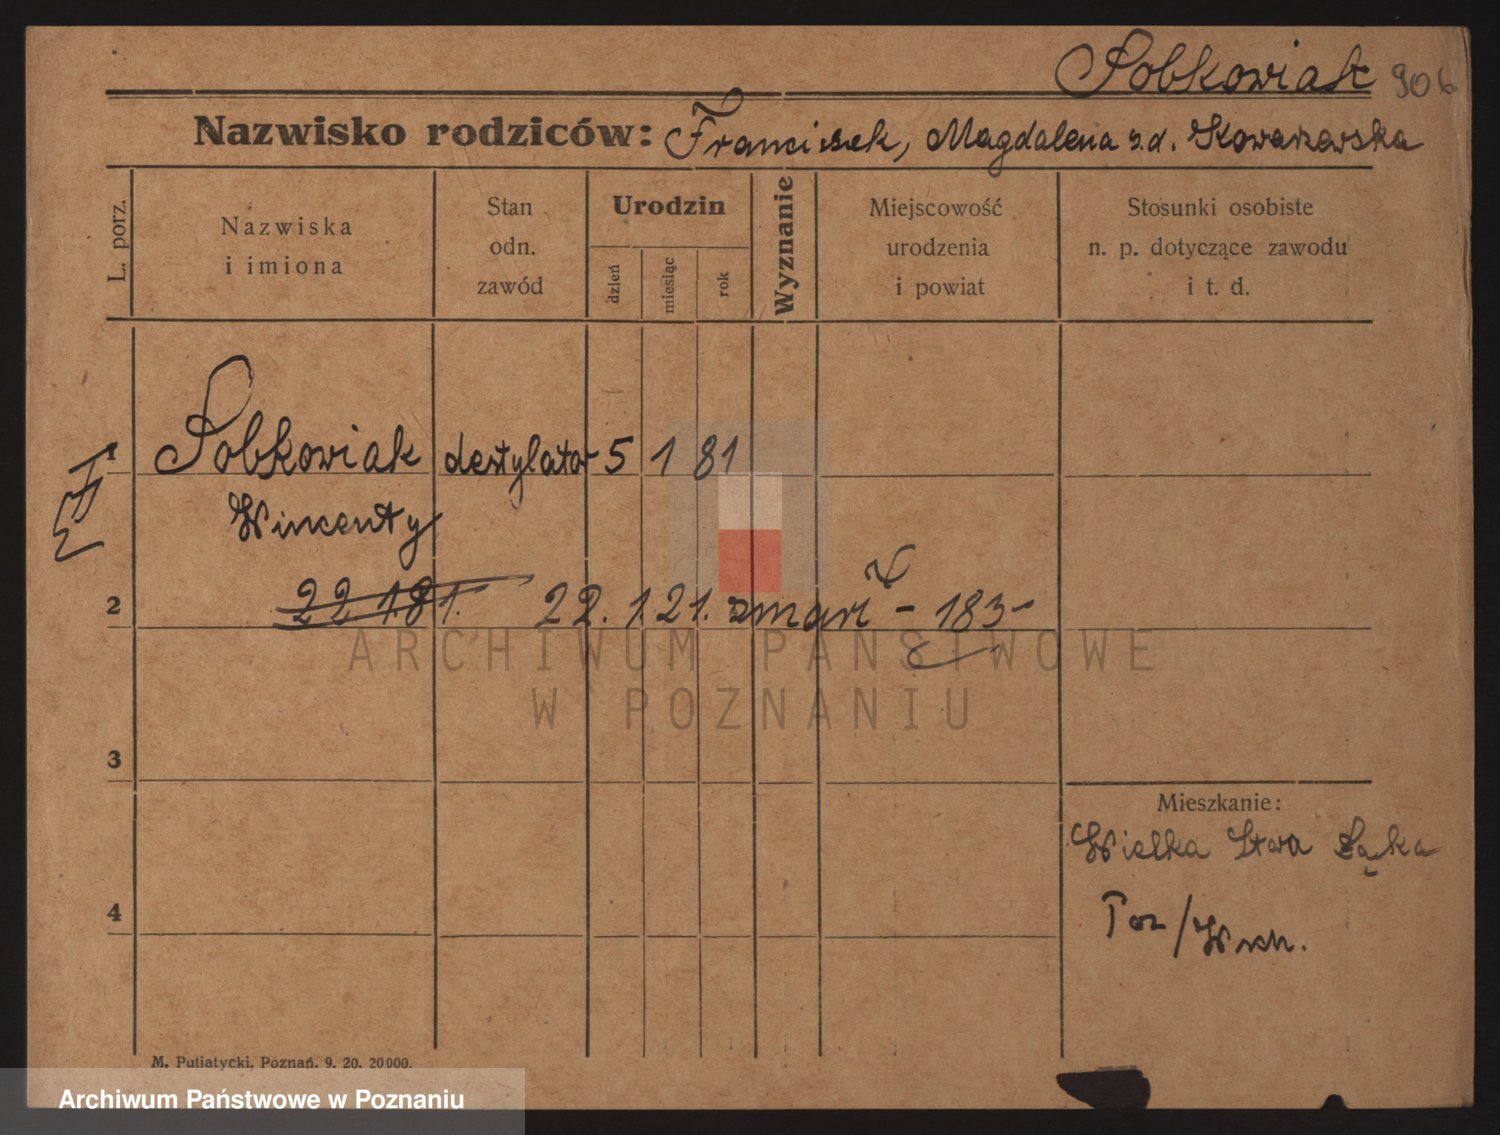 Sobkowiak 906
Nazwisko rodziców: Franciszek, Magdalena z.d. Kowarzewska
L. porz.
Nazwiska
i imiona
Stan
odn.
zawód
Urodzin
dzień
miesiąc
rok
Wyznanie
Miejscowość
urodzenia
i powiat
Stosunki osobiste
n. p. dotyczące zawodu
i t. d.
1 Sobkowiak destylator 5 1 81
Wincenty
2 22.1.81. 22.1.21. zmarł - 183 -
ARCHIWUM PAŃSTWOWE
W POZNANIU
3
Mieszkanie:
Wielka
4
M. Putiatycki, Poznań. 9. 20. 20000.
Archiwum Państwowe w Poznaniu